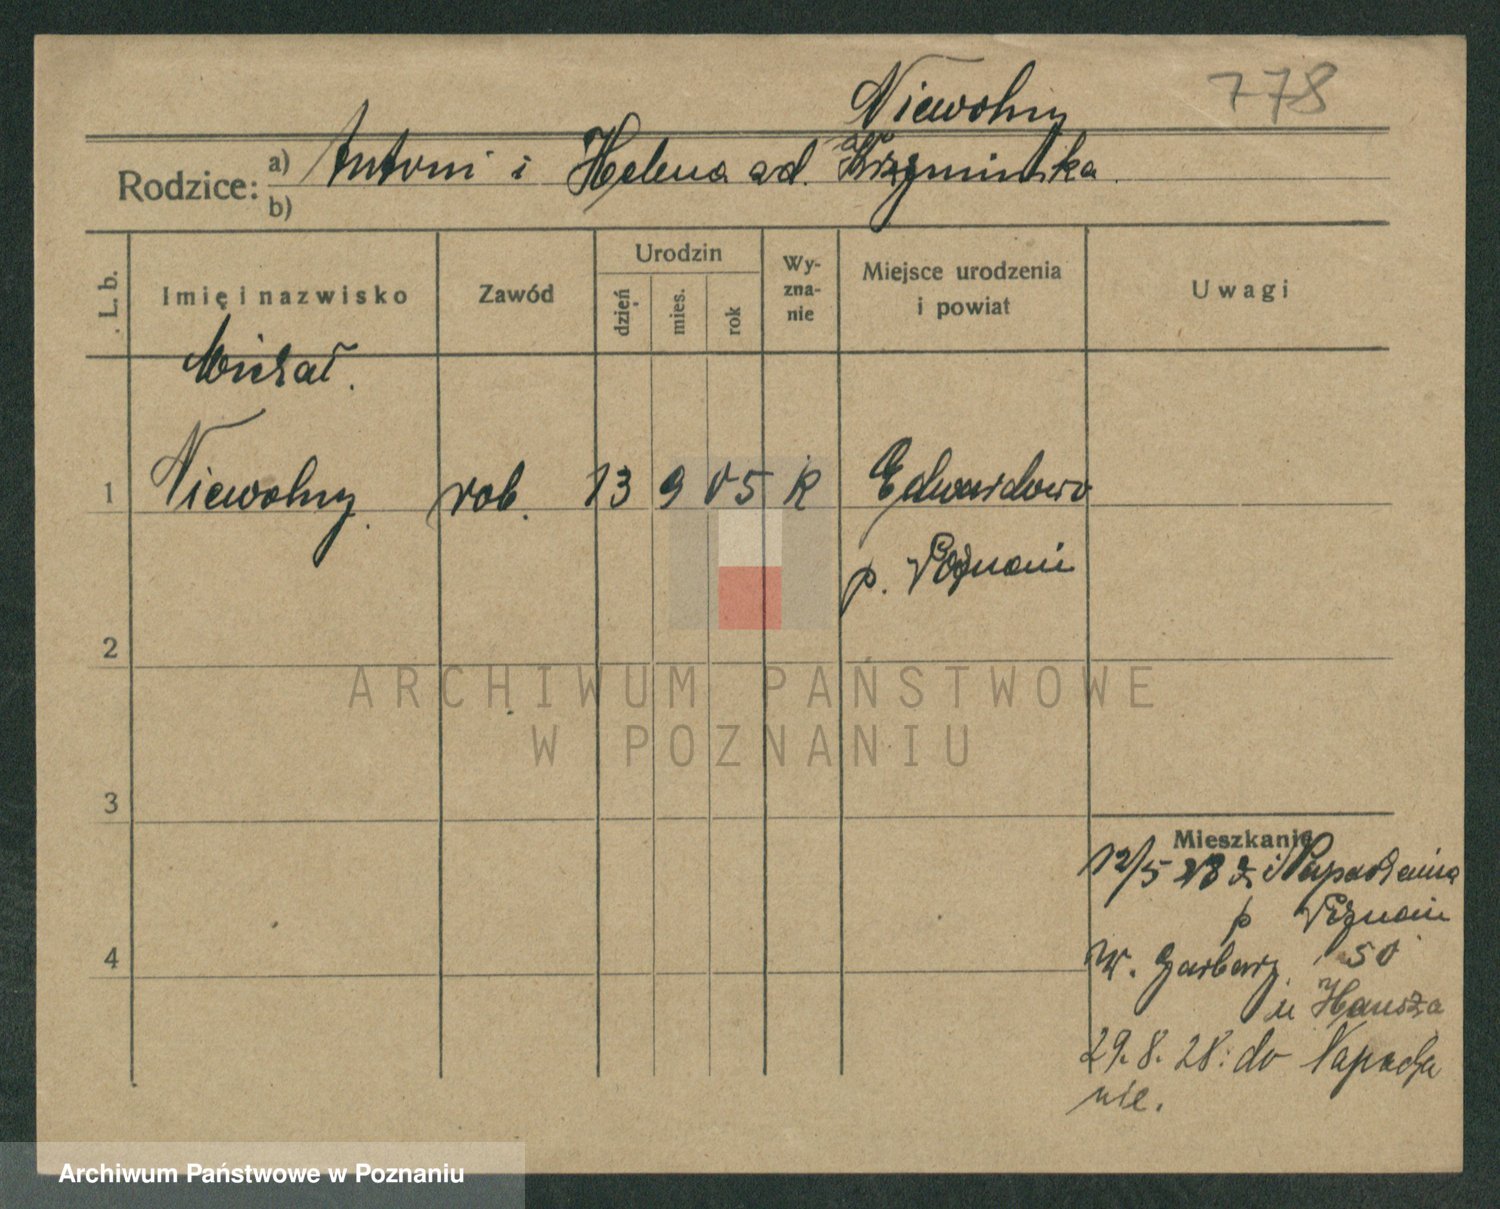 Niewolny 778
Rodzice: a) Antoni i Helena
b)
L. b.
Imię i nazwisko
Zawód
Urodzin
dzień
mies.
rok
Wy-
zna-
nie
Miejsce urodzenia
i powiat
Uwagi
Michał.
1 Niewolny. rob. 13 9 05 K Edwardowo
p. Poznań
2
3
4
Mieszkanie
12/5 28 z
p Poznań
W. Garbary 50
u Hansza
29. 8. 28. do Napacha
nie.
ARCHIWUM PAŃSTWOWE
W POZNANIU
Archiwum Państwowe w Poznaniu